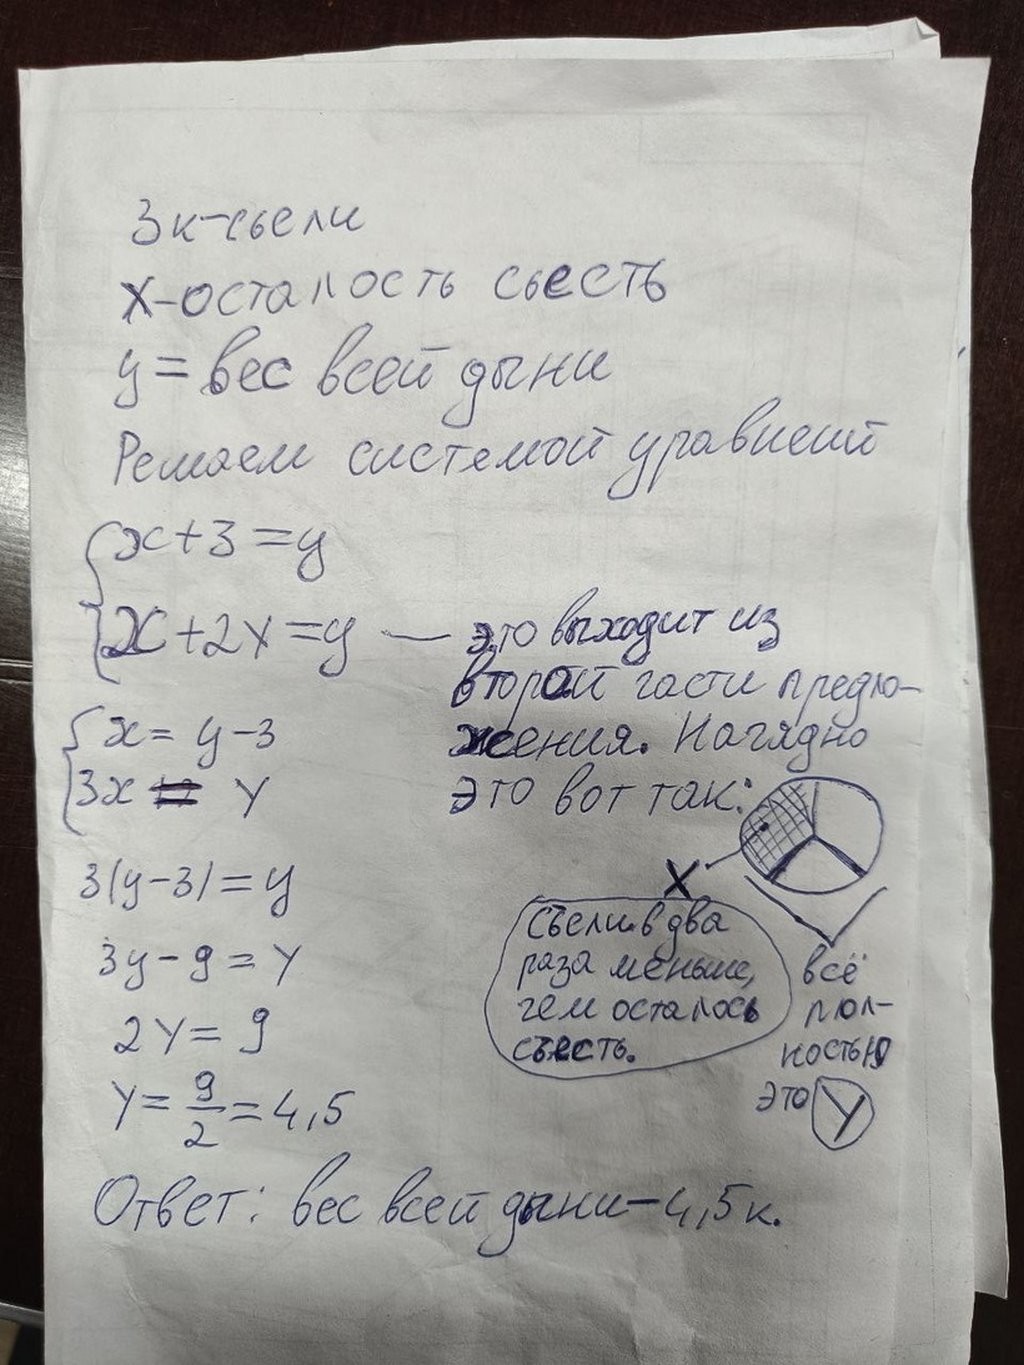 3к-сьели
х-осталость сьесть
у = вес всей дыни
Решаем системой уравнений
x+3=y
x+2x=y — это выходит из
второй части предло-
жения. Наглядно
это вот так:
x= y-3
3x = y
3(y-3)=y
3y-9=y
2y=9
y=9/2=4,5
X
Съели в два
раза меньше,
чем осталось
съесть.
всё
пол-
ностью
это Y
Ответ: вес всей дыни-4,5к.